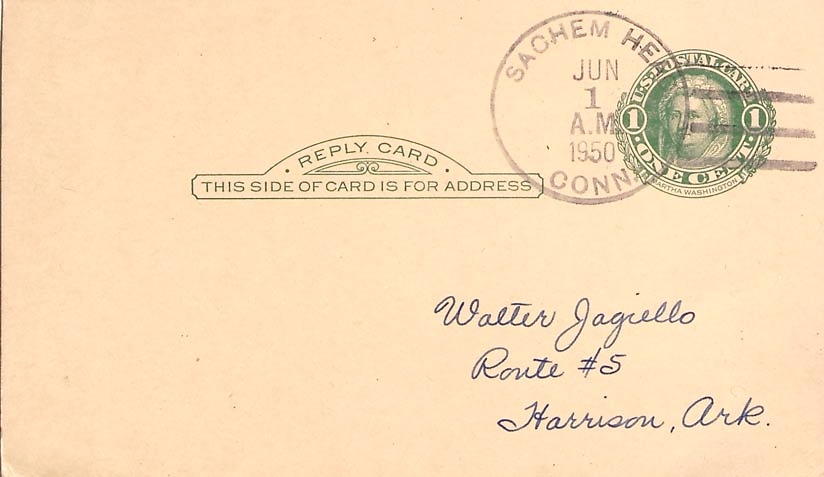 SACHEM HE
JUN
1
A.M.
1950
CONN.
U.S. POSTAL CARD
1 1
ONE CENT
MARTHA WASHINGTON
REPLY CARD
THIS SIDE OF CARD IS FOR ADDRESS
Walter Jagiello
Route #5
Harrison, Ark.